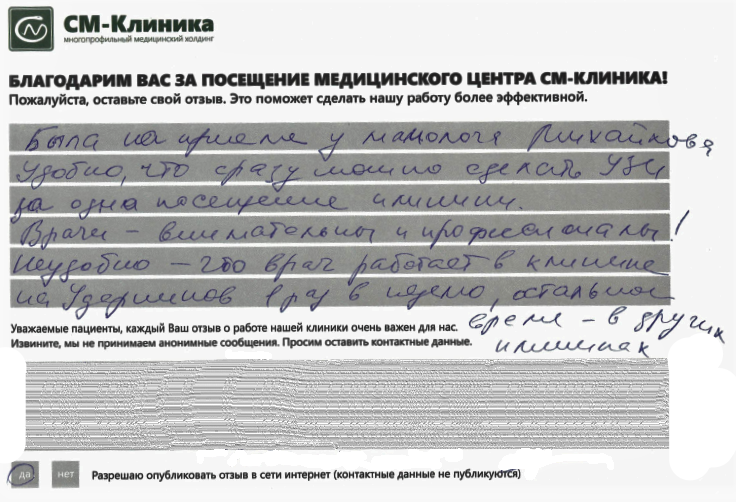 СМ-Клиника
многопрофильный медицинский холдинг
БЛАГОДАРИМ ВАС ЗА ПОСЕЩЕНИЕ МЕДИЦИНСКОГО ЦЕНТРА СМ-КЛИНИКА!
Пожалуйста, оставьте свой отзыв. Это поможет сделать нашу работу более эффективной.
Была на приеме у маммолога
Удобно, что сразу можно сделать УЗИ
за одно посещение клиники.
Врачи - внимательны и профессионалы!
Неудобно - что врач работает в клинике
на Ударников 1 раз в неделю, остальное
время - в других
клиниках
Уважаемые пациенты, каждый Ваш отзыв о работе нашей клиники очень важен для нас.
Извините, мы не принимаем анонимные сообщения. Просим оставить контактные данные.
да нет Разрешаю опубликовать отзыв в сети интернет (контактные данные не публикуются)